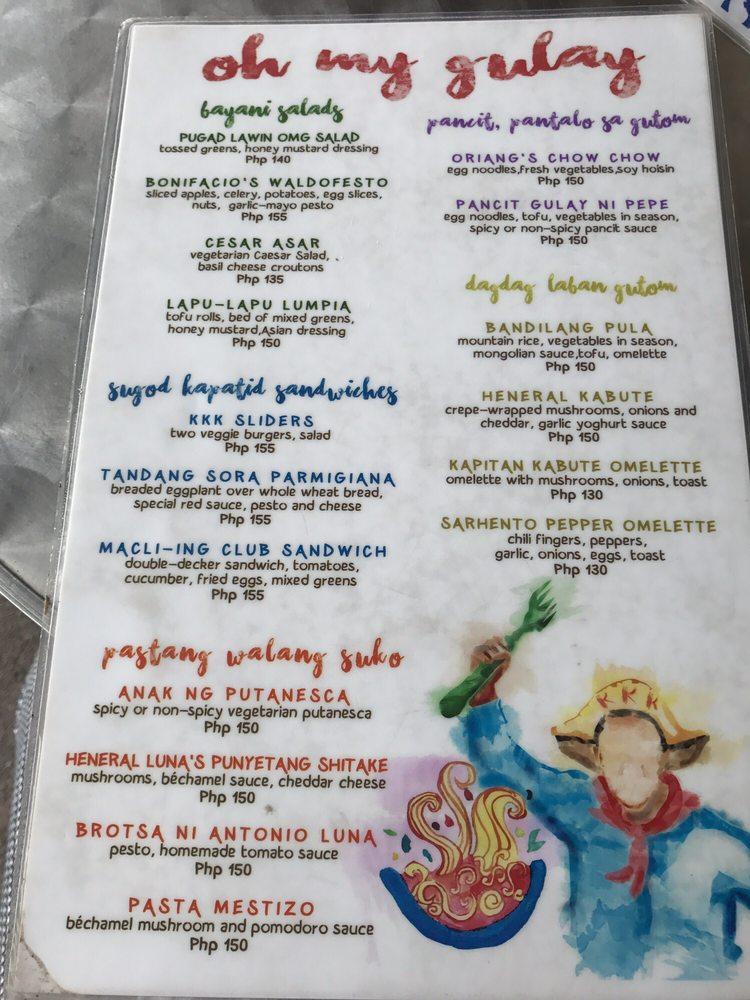 oh my gulay
bayani salads
PUGAD LAWIN OMG SALAD
tossed greens, honey mustard dressing
Php 140
BONIFACIO'S WALDOFESTO
sliced apples, celery, potatoes, egg slices,
nuts, garlic-mayo pesto
Php 155
CESAR ASAR
vegetarian Caesar Salad,
basil cheese croutons
Php 135
LAPU-LAPU LUMPIA
tofu rolls, bed of mixed greens,
honey mustard,Asian dressing
Php 150
sugod kapatid sandwiches
KKK SLIDERS
two veggie burgers, salad
Php 155
TANDANG SORA PARMIGIANA
breaded eggplant over whole wheat bread,
special red sauce, pesto and cheese
Php 155
MACLI-ING CLUB SANDWICH
double-decker sandwich, tomatoes,
cucumber, fried eggs, mixed greens
Php 155
pastang walang suko
ANAK NG PUTANESCA
spicy or non-spicy vegetarian putanesca
Php 150
HENERAL LUNA'S PUNYETANG SHITAKE
mushrooms, béchamel sauce, cheddar cheese
Php 150
BROTSA NI ANTONIO LUNA
pesto, homemade tomato sauce
Php 150
PASTA MESTIZO
béchamel mushroom and pomodoro sauce
Php 150
pancit, pantalo sa gutom
ORIANG'S CHOW CHOW
egg noodles,fresh vegetables,soy hoisin
Php 150
PANCIT GULAY NI PEPE
egg noodles, tofu, vegetables in season,
spicy or non-spicy pancit sauce
Php 150
dagdag laban gutom
BANDILANG PULA
mountain rice, vegetables in season,
mongolian sauce,tofu, omelette
Php 150
HENERAL KABUTE
crepe-wrapped mushrooms, onions and
cheddar, garlic yoghurt sauce
Php 150
KAPITAN KABUTE OMELETTE
omelette with mushrooms, onions, toast
Php 130
SARHENTO PEPPER OMELETTE
chili fingers, peppers,
garlic, onions, eggs, toast
Php 130
KKK